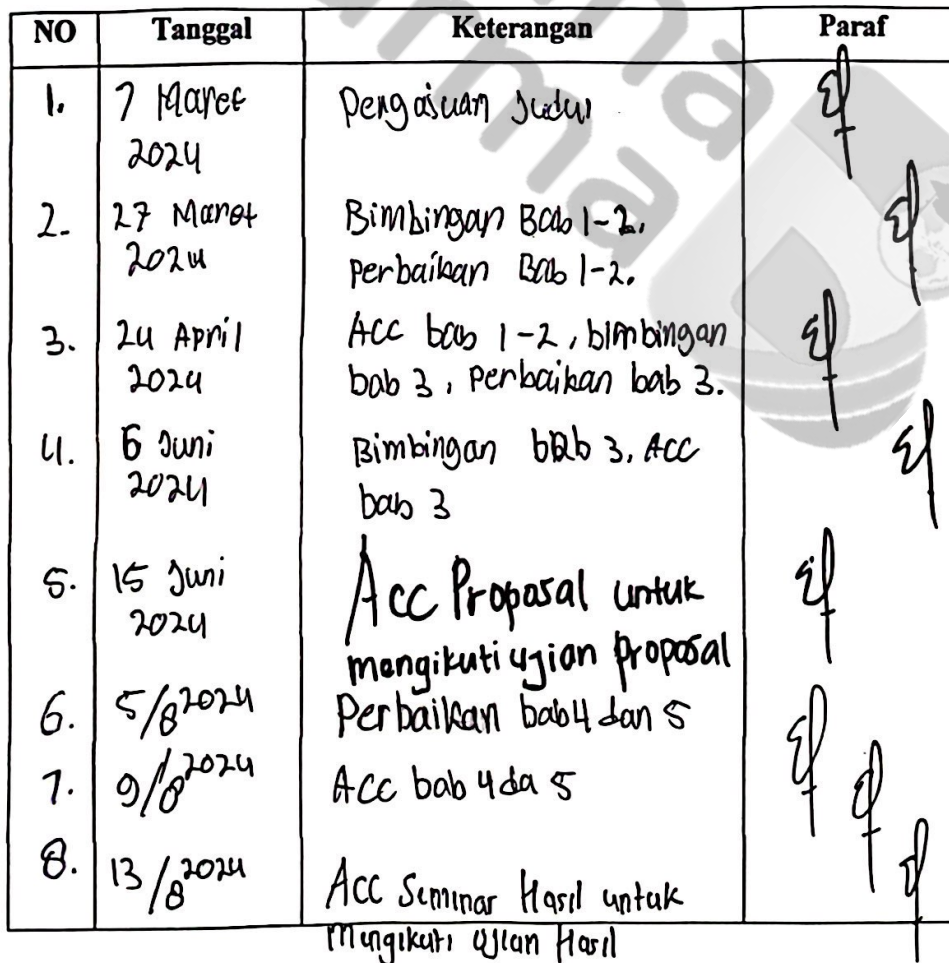 NO Tanggal Keterangan Paraf
1. 7 Maret Pengajuan Judul
2024
2. 27 Maret Bimbingan Bab 1-2.
2024 Perbaikan Bab 1-2.
3. 24 April ACC bab 1-2, bimbingan
2024 bab 3, perbaikan bab 3.
4. 6 Juni Bimbingan bab 3, ACC
2024 bab 3
5. 15 Juni Acc Proposal untuk
2024 mengikuti ujian proposal
6. 5/8 2024 Perbaikan bab 4 dan 5
7. 9/8 2024 Acc bab 4 da 5
8. 13/8 2024 Acc Seminar Hasil untuk
Mengikuti Ujian Hasil